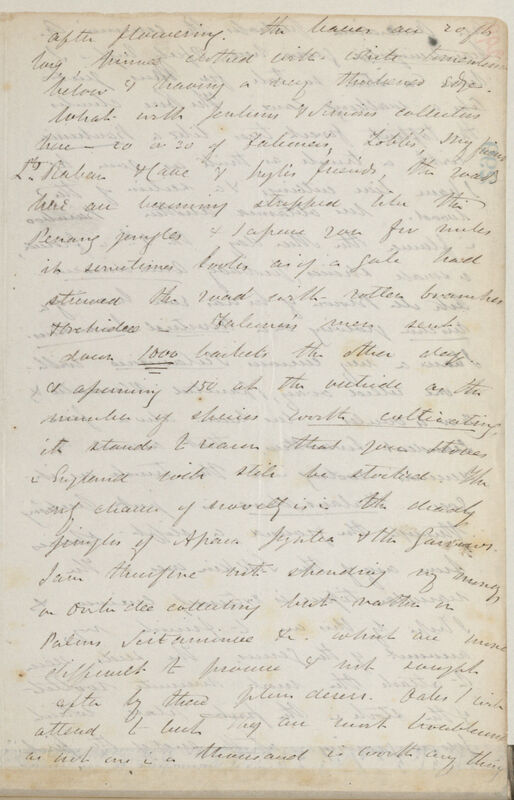 after flowering. the leaves are 20 ft
long pinnae clothed with white tomentum
below & having a very thickened edge.
What with Jenkins & Simons collectors
here — 20 or 30 of Falconer's, Lobb's, my friends
Raban & Cave & Inglis friends, the roads
here are becoming stripped like the
Penang jungles & I assure you for miles
it sometimes looks as if a gale had
strewed the road with rotten branches
& Orchideae. Falconer's men sent
down 1000 baskets the other day
& assuming 150 at the outside as the
number of species worth cultivating,
it stands to reason that your stoves
in England will still be stocked. The
only chance of novelty is in the deadly
jungles of Assam Jyntea & the Garrows.
I am therefore not spending my money
on Orchideae collecting but rather on
Palms Scitamineae &c. which are more
difficult to procure & not sought
after by these plunderers. Oaks I will
attend to but they are most troublesome
as not one in a thousand is worth any thing